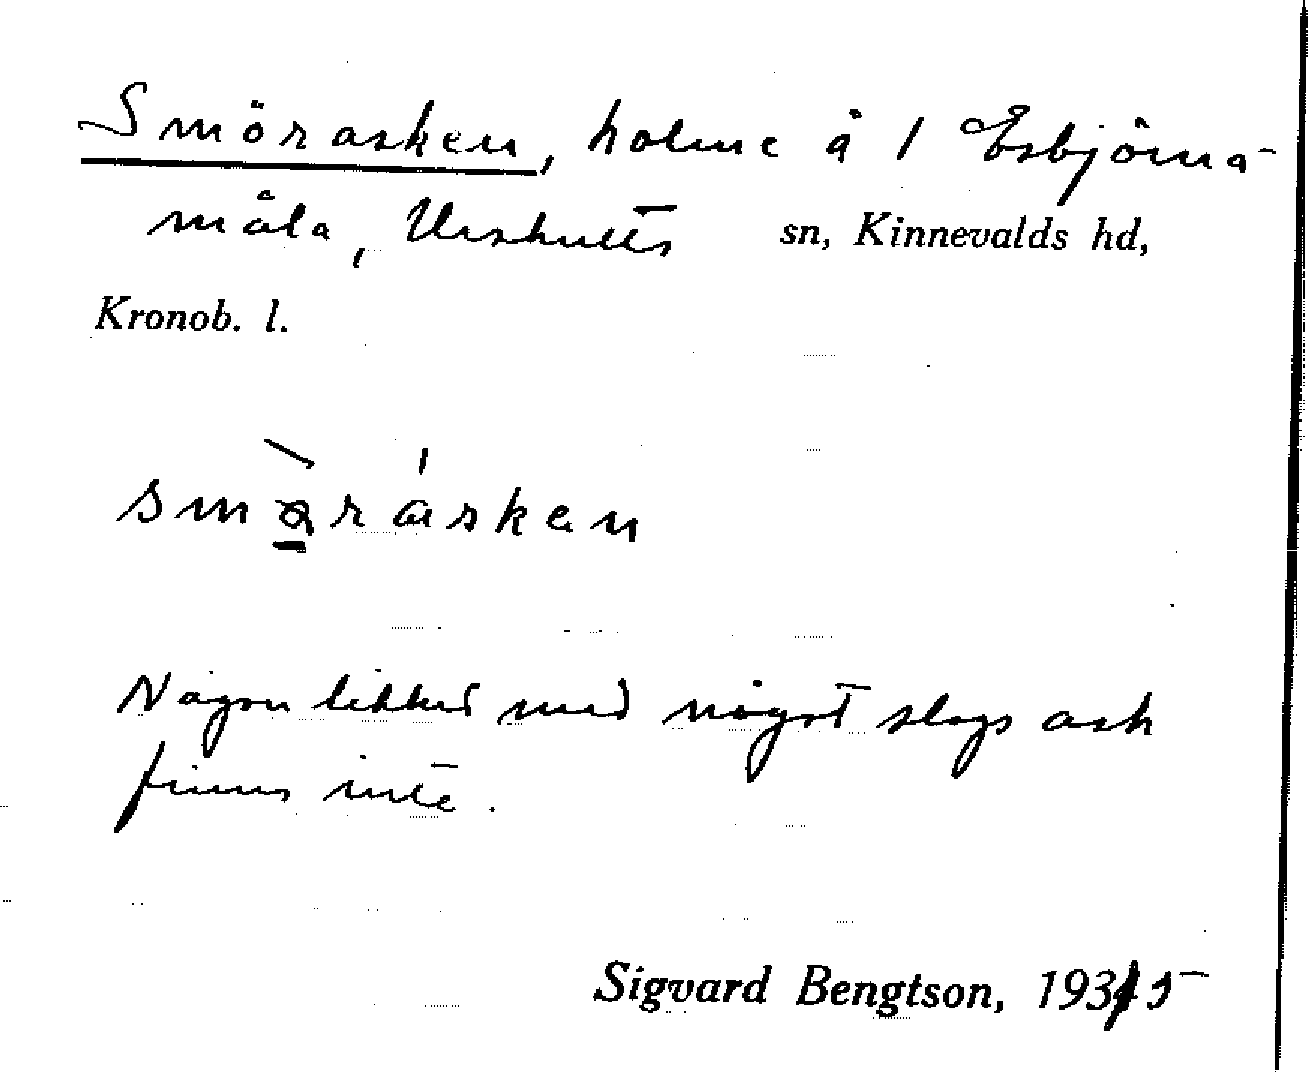 Smörasken, holme å 1 Esbjörna-
måla, Urshults sn, Kinnevalds hd,
Kronob. l.
smö̀rásken
Någon likhet med något slags ask
finns inte.
Sigvard Bengtson, 1935